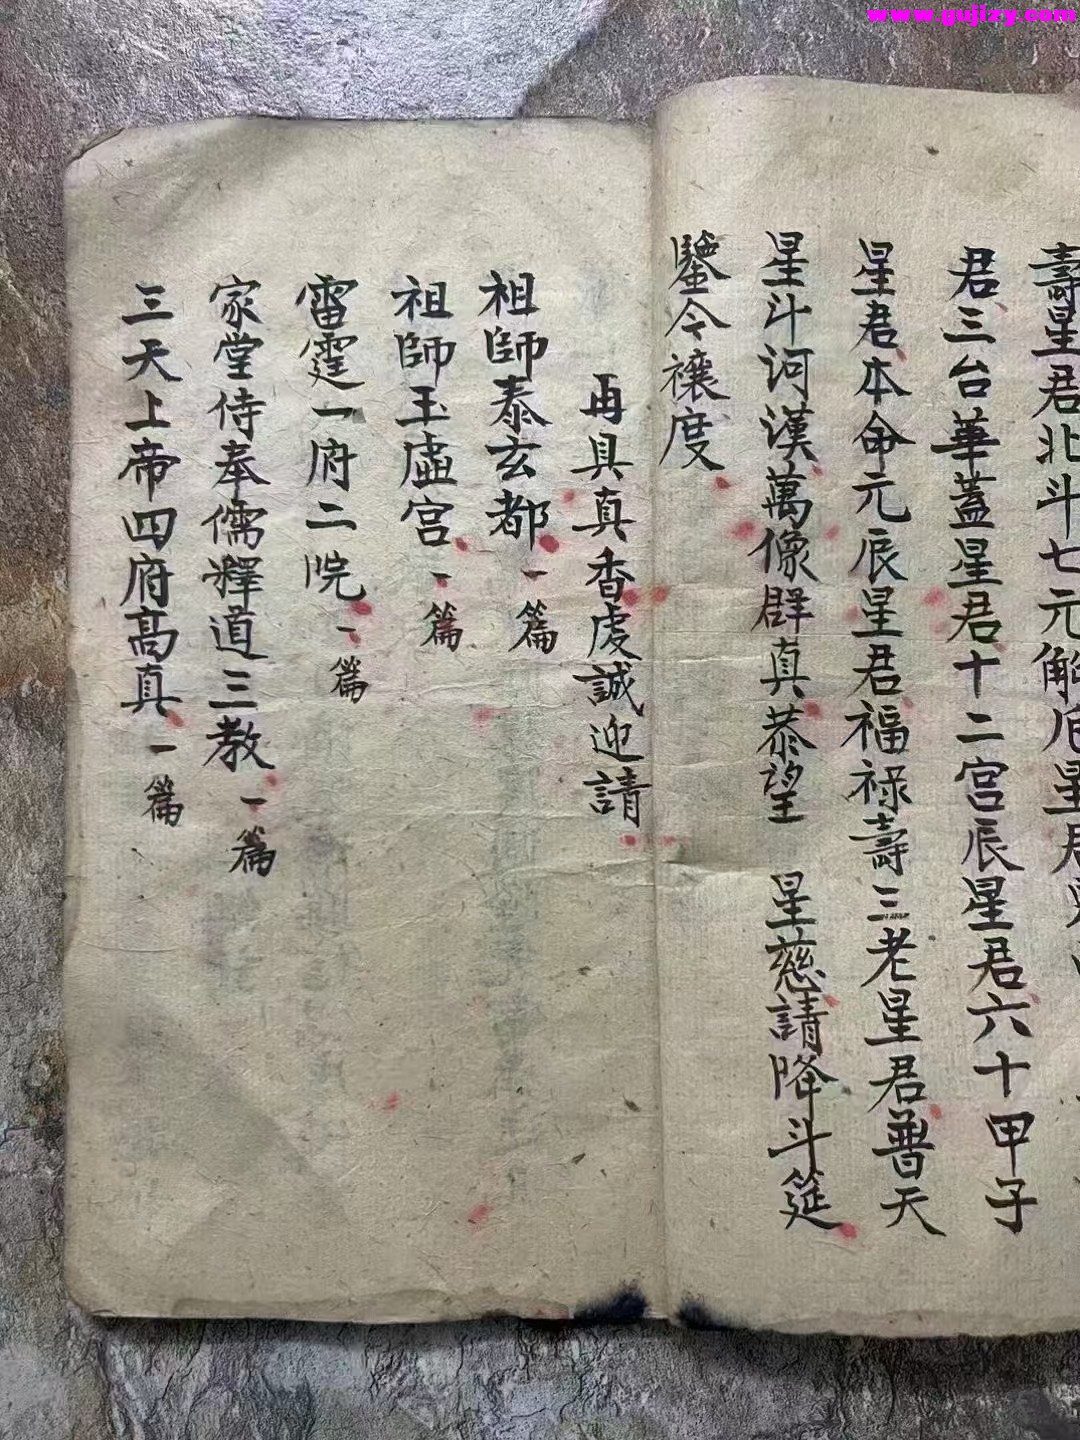 www.gujizy.com
壽星君北斗七元解厄星君
君三台華蓋星君十二宮辰星君六十甲子
星君本命元辰星君福祿壽三老星君普天
星斗河漢萬像群真恭望 星慈請降斗筵
鑒今禳度
再具真香虔誠迎請
祖師泰玄都一篇
祖師玉虛宮一篇
雷霆一府二院一篇
家堂侍奉儒釋道三教一篇
三天上帝四府高真一篇